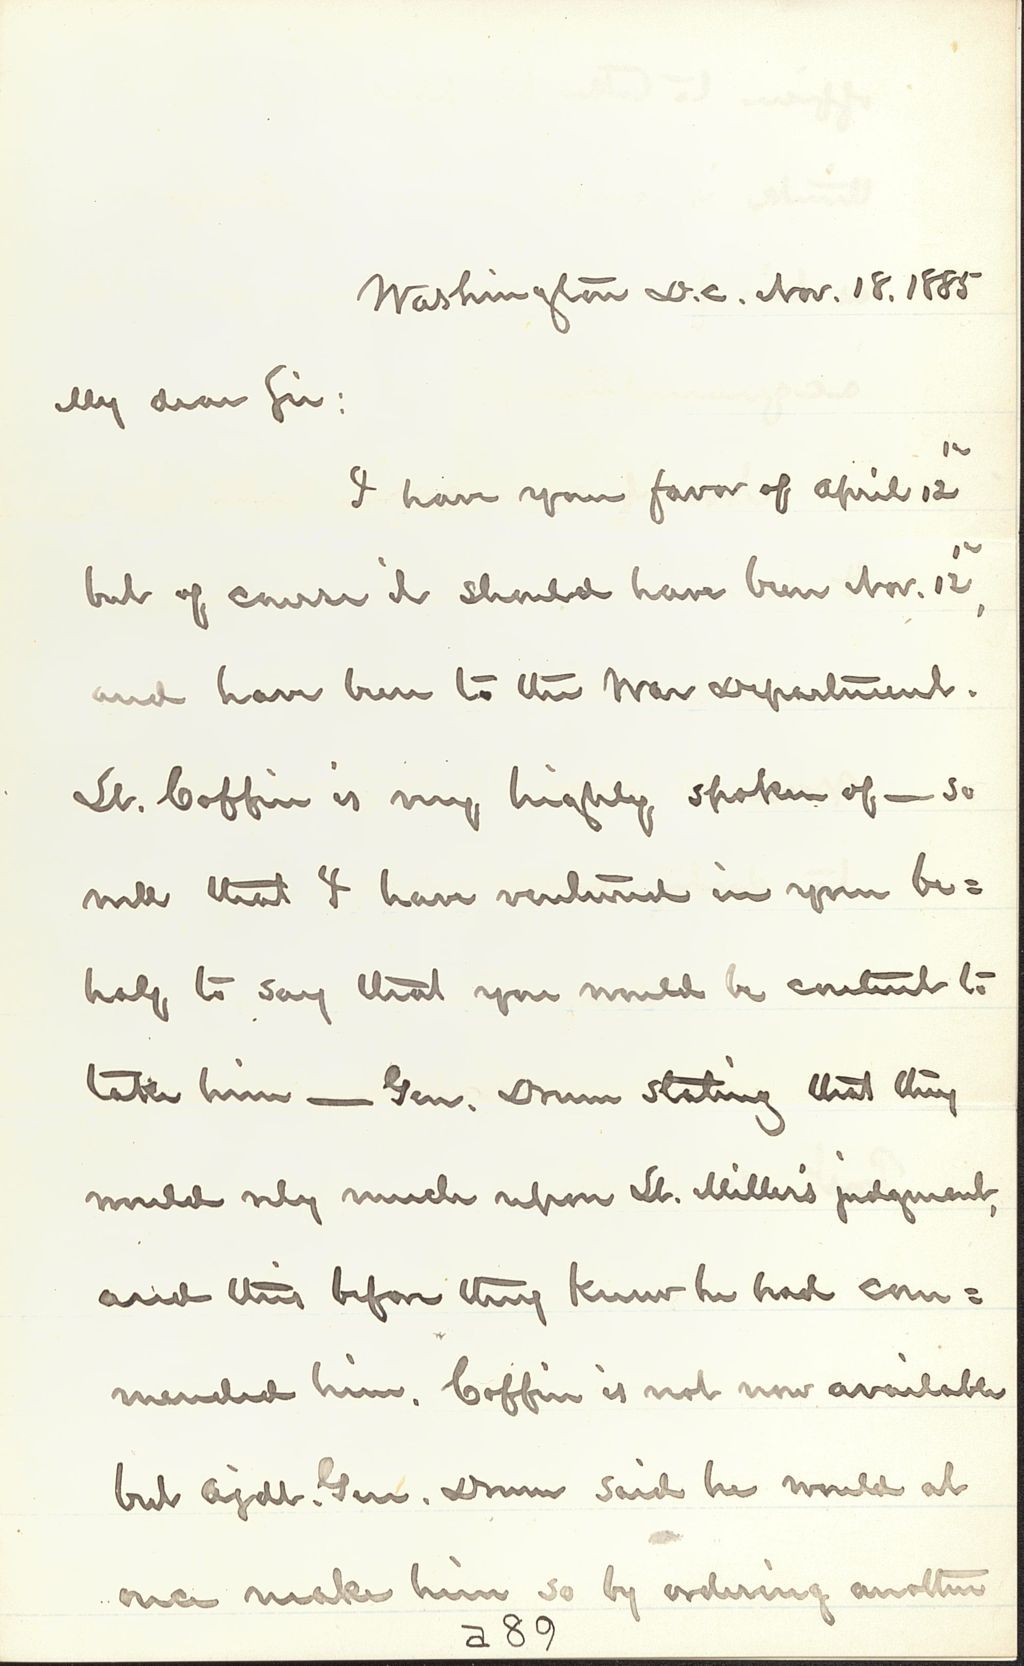 Washington D.C. Nov. 18. 1885
My dear Sir:
I have your favor of April 12th
but of course it should have been Nov. 12th,
and have been to the War Department.
Lt. Coffin is very highly spoken of — so
well that I have ventured in your be=
half to say that you would be content to
take him — Gen. Drum stating that they
would rely much upon Lt. Miller's judgment,
and this before they knew he had com=
mended him. Coffin is not now available
but Ajdt. Gen. Drum said he would at
once make him so by ordering another
a89